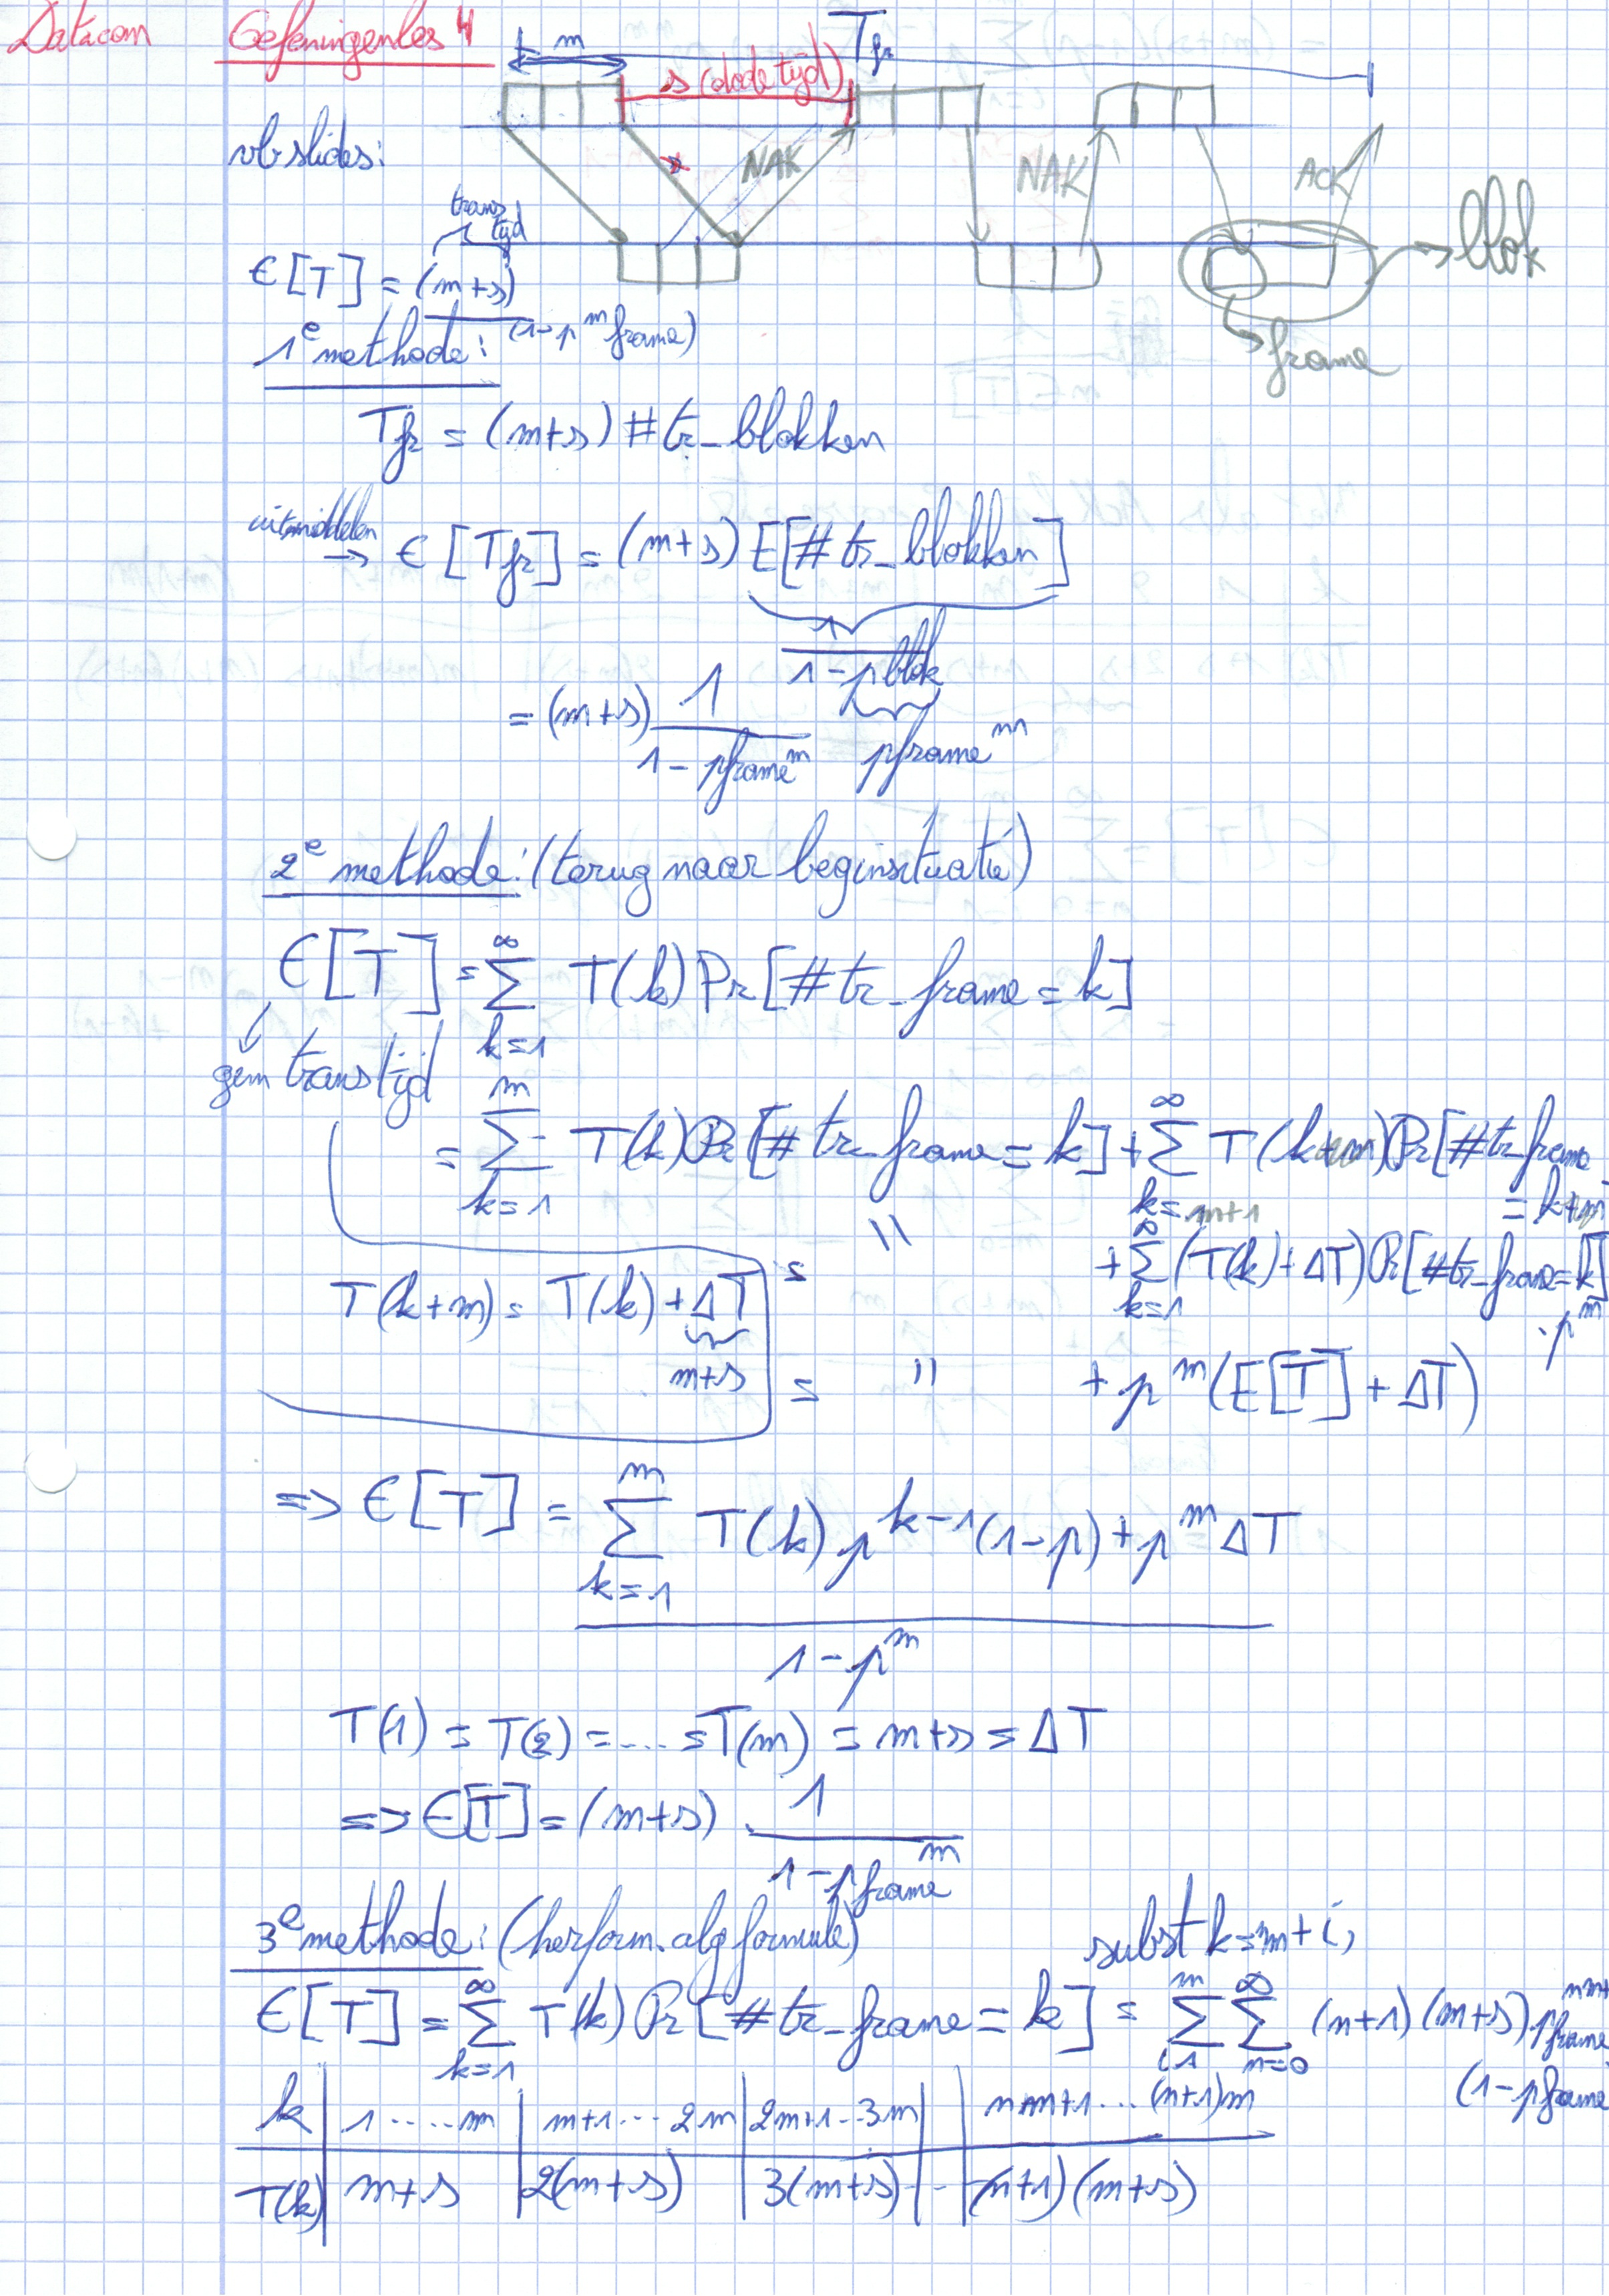 Datacom Oefeningenles 4
m
T_fr
s (dode tijd)
vb slides:
NAK
NAK
ACK
blok
trans tijd
E[T] = (m+s) / (1-p^m frame)
frame
1e methode:
T_fr = (m+s) # tr_blokken
uitmiddelen → E[T_fr] = (m+s) E[# tr_blokken]
1 / (1-p blok)
= (m+s) 1 / (1-pframe^m)
pframe^m
2e methode: (terug naar beginsituatie)
E[T] = ∑_{k=1}^{∞} T(k) Pr[# tr_frame = k]
gem transtijd
= ∑_{k=1}^{m} T(k) Pr[# tr_frame = k] + ∑_{k=m+1}^{∞} T(k+m) Pr[# tr_frame = k+m]
= " + ∑_{k=1}^{∞} (T(k)+ΔT) Pr[# tr_frame = k] . p^m
T(k+m) = T(k) + ΔT
m+s
= " + p^m (E[T] + ΔT)
=> E[T] = ∑_{k=1}^{m} T(k) p^{k-1} (1-p) + p^m ΔT
1-p^m
T(1) = T(2) = .... = T(m) = m+s = ΔT
=> E[T] = (m+s) . 1 / (1-pframe^m)
3e methode: (herform. alg formule)
subst k=m+i,
E[T] = ∑_{k=1}^{∞} T(k) Pr[# tr_frame = k] = ∑_{i=1}^{m} ∑_{n=0}^{∞} (n+1) (m+s) . pframe
(1-pframe
k | 1 ..... m | m+1 ... 2m | 2m+1 .. 3m | nm+1 ... (n+1)m
T(k) | m+s | 2(m+s) | 3(m+s) .. | (n+1)(m+s)